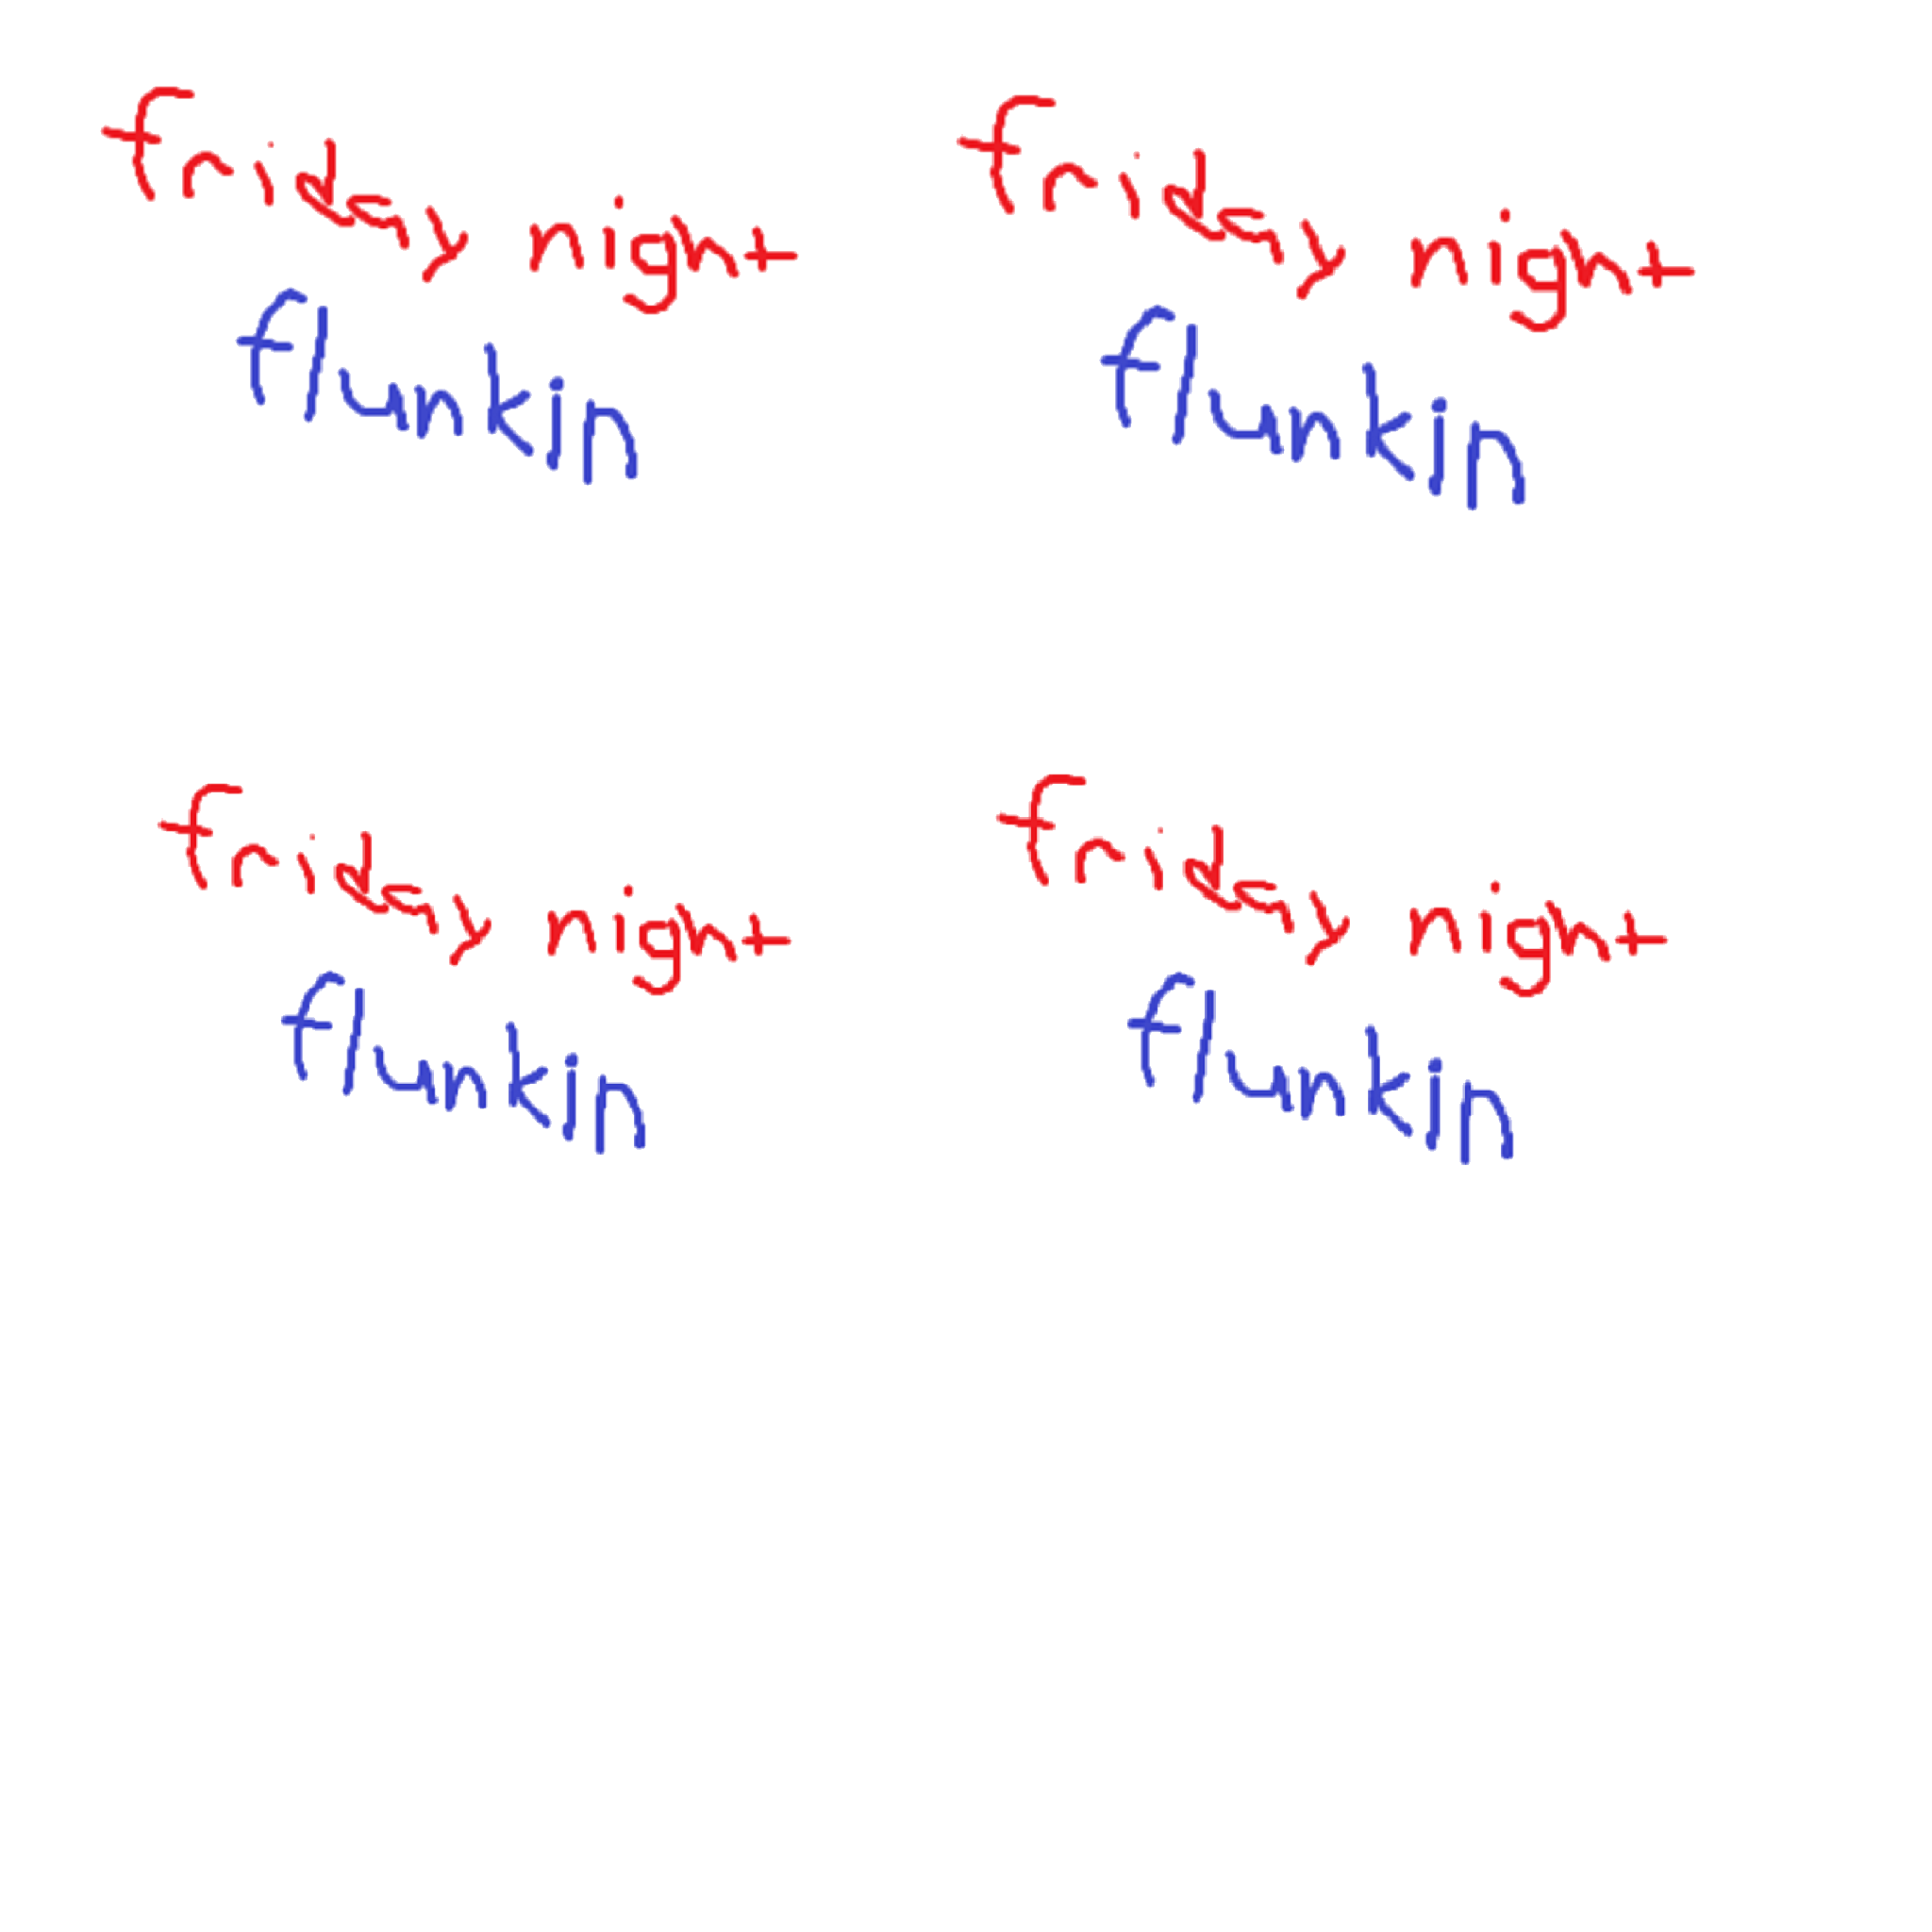 friday night
flunkin
friday night
flunkin
friday night
flunkin
friday night
flunkin